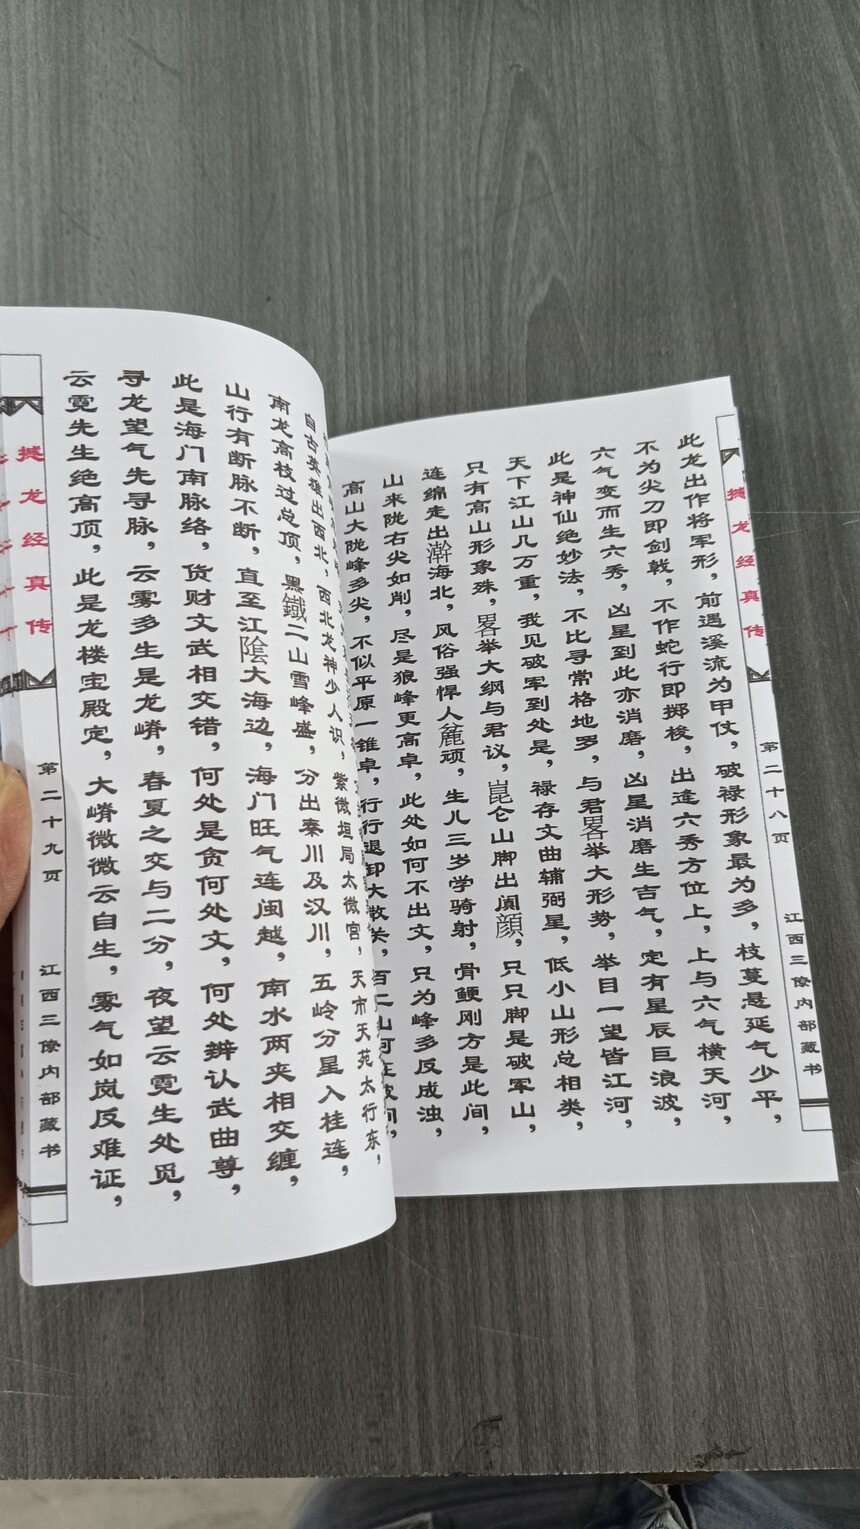 撼龙经真传
第二十八页
江西三僚内部藏书
此龙出作将军形，前遇溪流为甲仗，破禄形象最为多，枝蔓悬延气少平，
不为尖刀即剑戟，不作蛇行即掷梭，出逢六秀方位上，上与六气横天河，
六气变而生六秀，凶星到此亦消磨，凶星消磨生吉气，定有星辰巨浪波，
此是神仙绝妙法，不比寻常格地罗，与君畧举大形势，举目一望皆江河，
天下江山几万重，我见破军到处是，禄存文曲辅弼星，低小山形总相类，
只有高山形象殊，畧举大纲与君议，崑仑山脚出阗顔，只只脚是破军山，
连绵走出瀚海北，风俗强悍人麄顽，生儿三岁学骑射，骨鲠刚方是此间，
山来陇右尖如削，尽是狼峰更高卓，此处如何不出文，只为峰多反成浊，
高山大陇峰多尖，不似平原一锥卓，行行退卸大散关，百二山河在
自古英雄出西北，西北龙神少人识，紫微垣局太微宫，天市天苑太行东，
南龙高枝过总顶，黑鐵二山雪峰盛，分出秦川及汉川，五岭分星入桂连，
山行有断脉不断，直至江陰大海边，海门旺气连闽越，南水两夹相交缠，
此是海门南脉络，货财文武相交错，何处是贪何处文，何处辨认武曲尊，
寻龙望气先寻脉，云雾多生是龙嵴，春夏之交与二分，夜望云霓生处觅，
云霓先生绝高顶，此是龙楼宝殿定，大嵴微微云自生，雾气如岚反难证，
撼龙经真传
第二十九页
江西三僚内部藏书